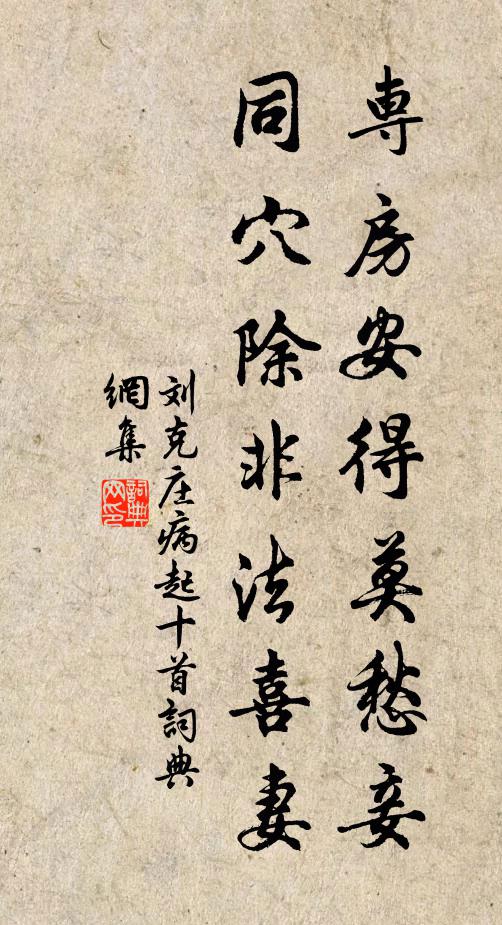 専房安得莫愁妾
同穴除非法喜妻
刘克庄病起十首詞典
網集
詞典
网印